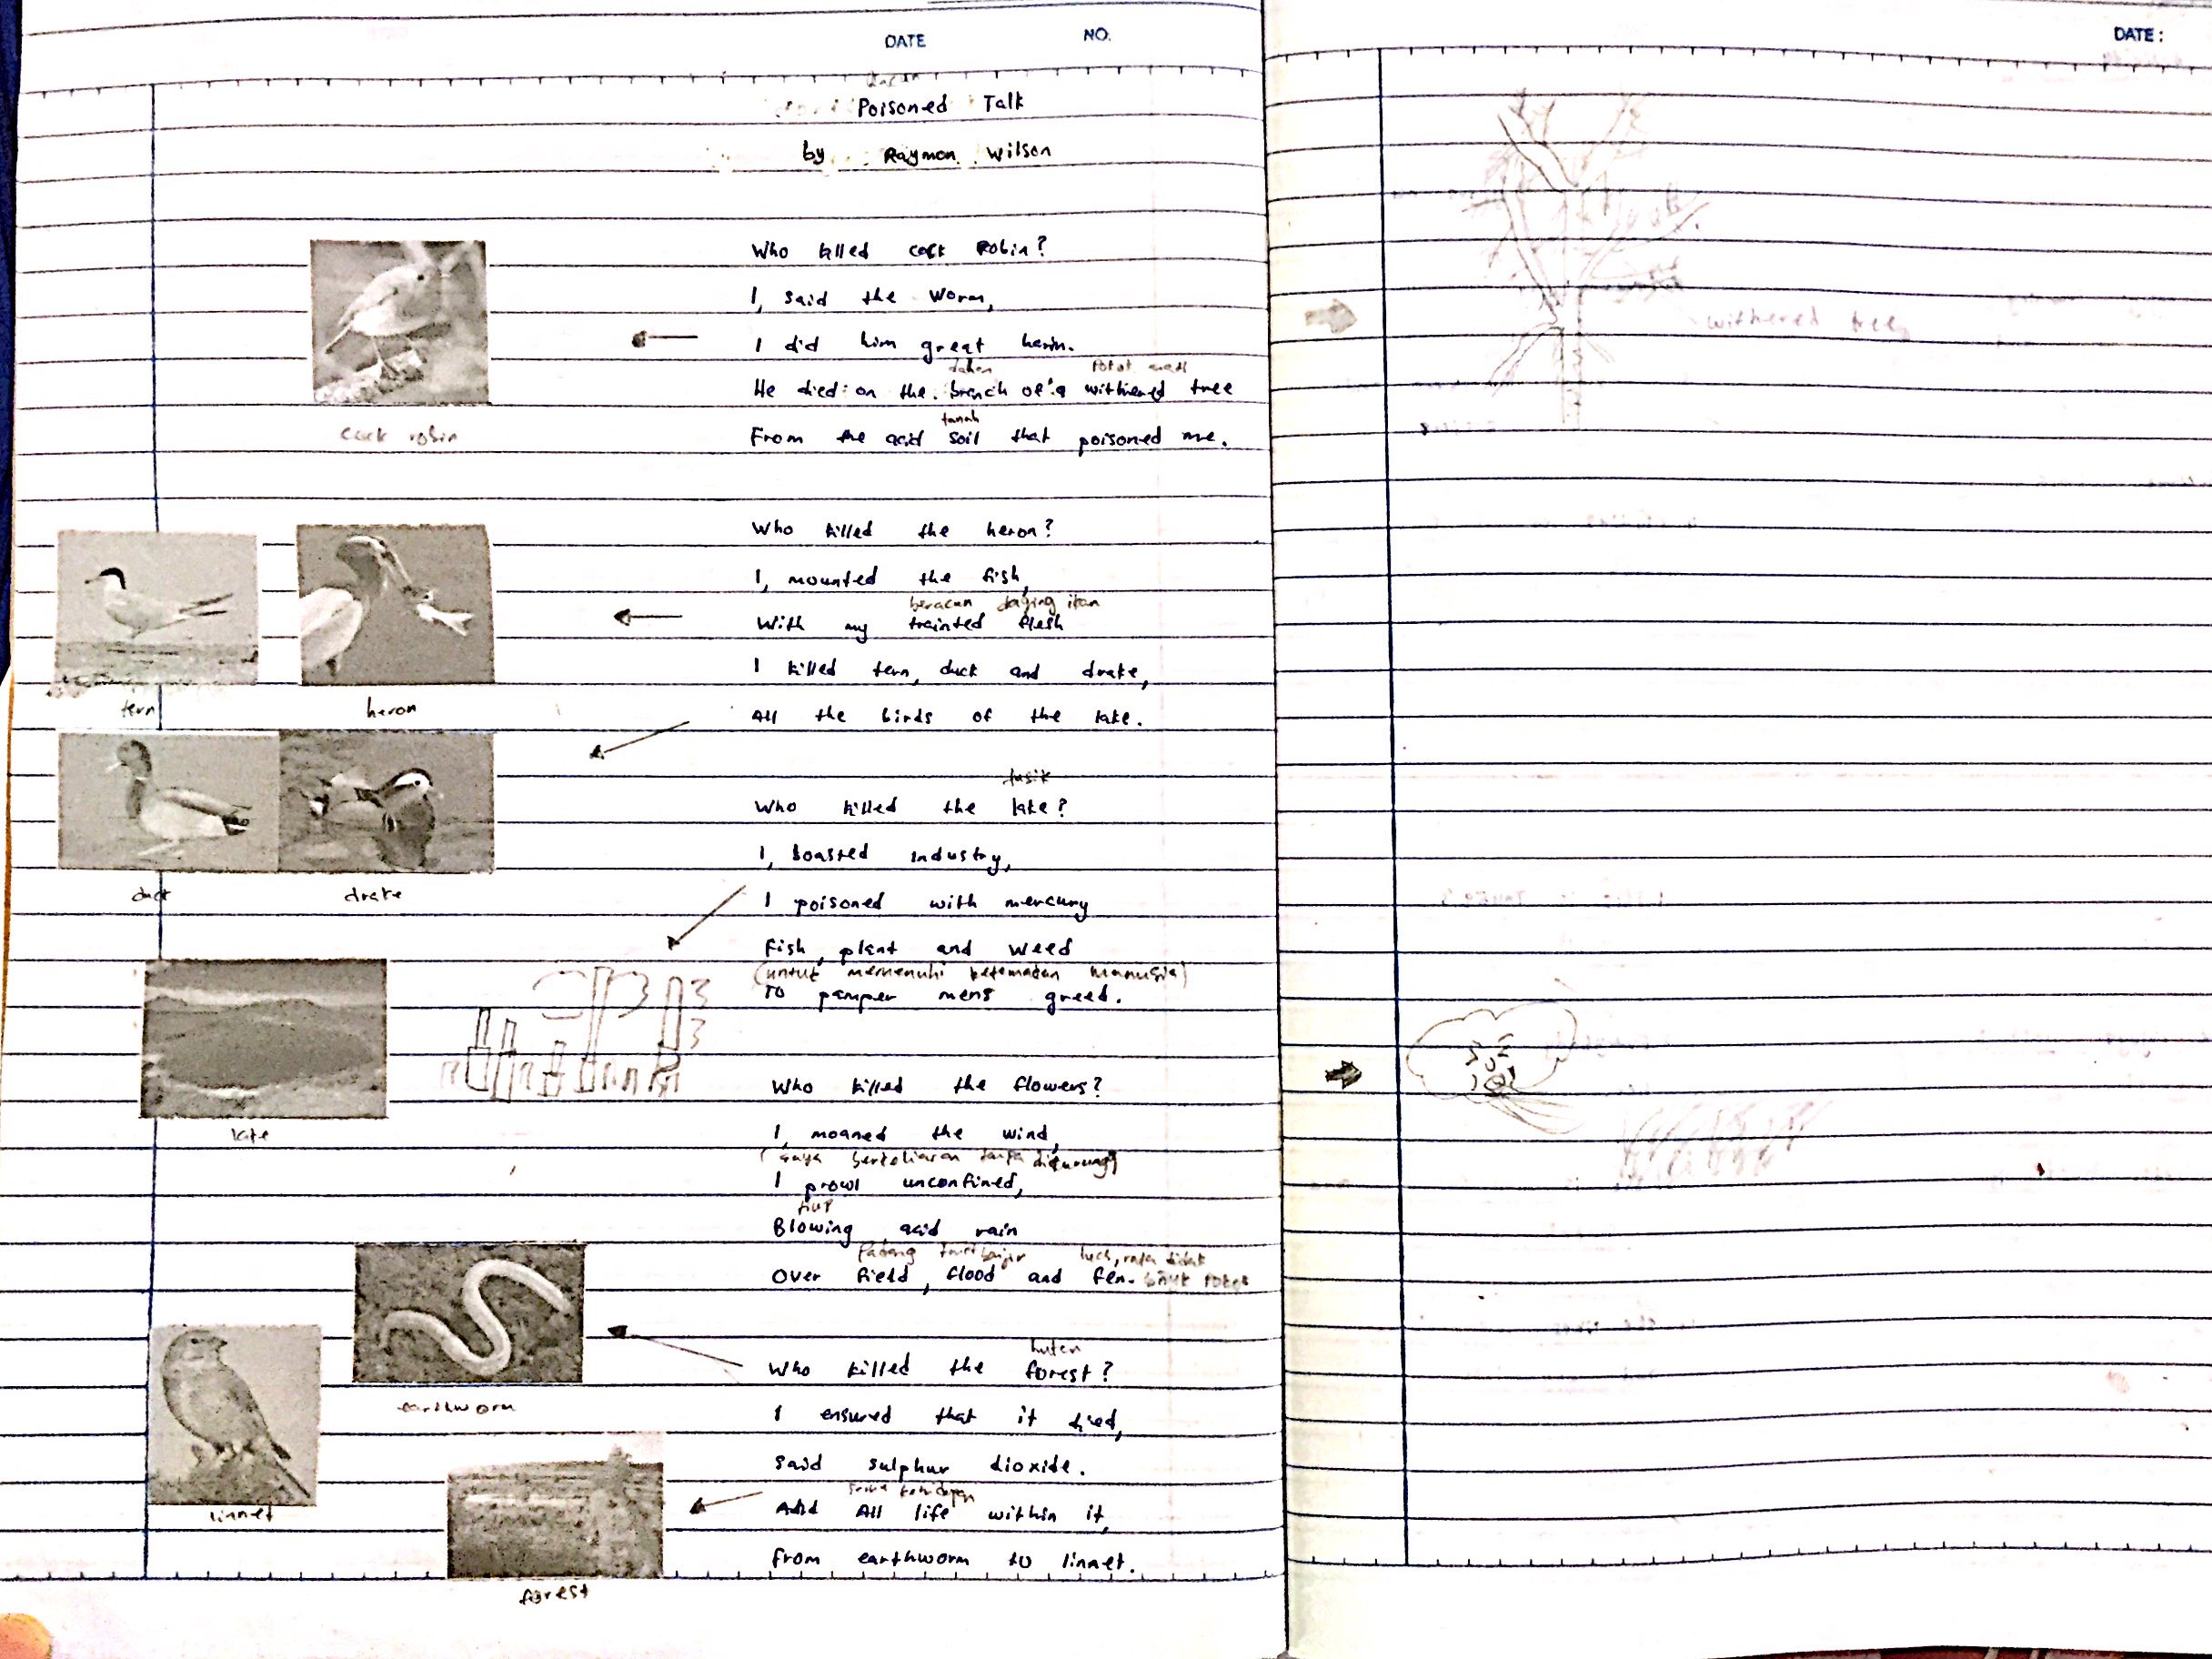 DATE NO.
racun
Poisoned Talk
by Raymon Wilson
Who killed cock Robin?
I, said the Worm,
I did him great harm.
dahan pokok mati
He died on the branch of a withered tree
tanah
From the acid soil that poisoned me.
cock robin
Who killed the heron?
I, mounted the fish,
beracun daging ikan
With my trainted flesh
I killed tern, duck and drake,
All the birds of the lake.
tern heron
tasik
Who killed the lake?
I, boasted industry,
I poisoned with mercury
Fish, plant and weed
(untuk memenuhi ketamakan manusia)
To pamper mens greed.
duck drake
lake
Who killed the flowers?
I, moaned the wind,
(saya berkeliaran tanpa dikurung)
I prowl unconfined,
tiup
Blowing acid rain
Padang banjir
Over field, flood and fen.
hutan
Who killed the forest?
I ensured that it died,
said sulphur dioxide.
semua kehidupan
And All life within it,
From earthworm to linnet.
earthworm
linnet
forest
DATE:
withered tree